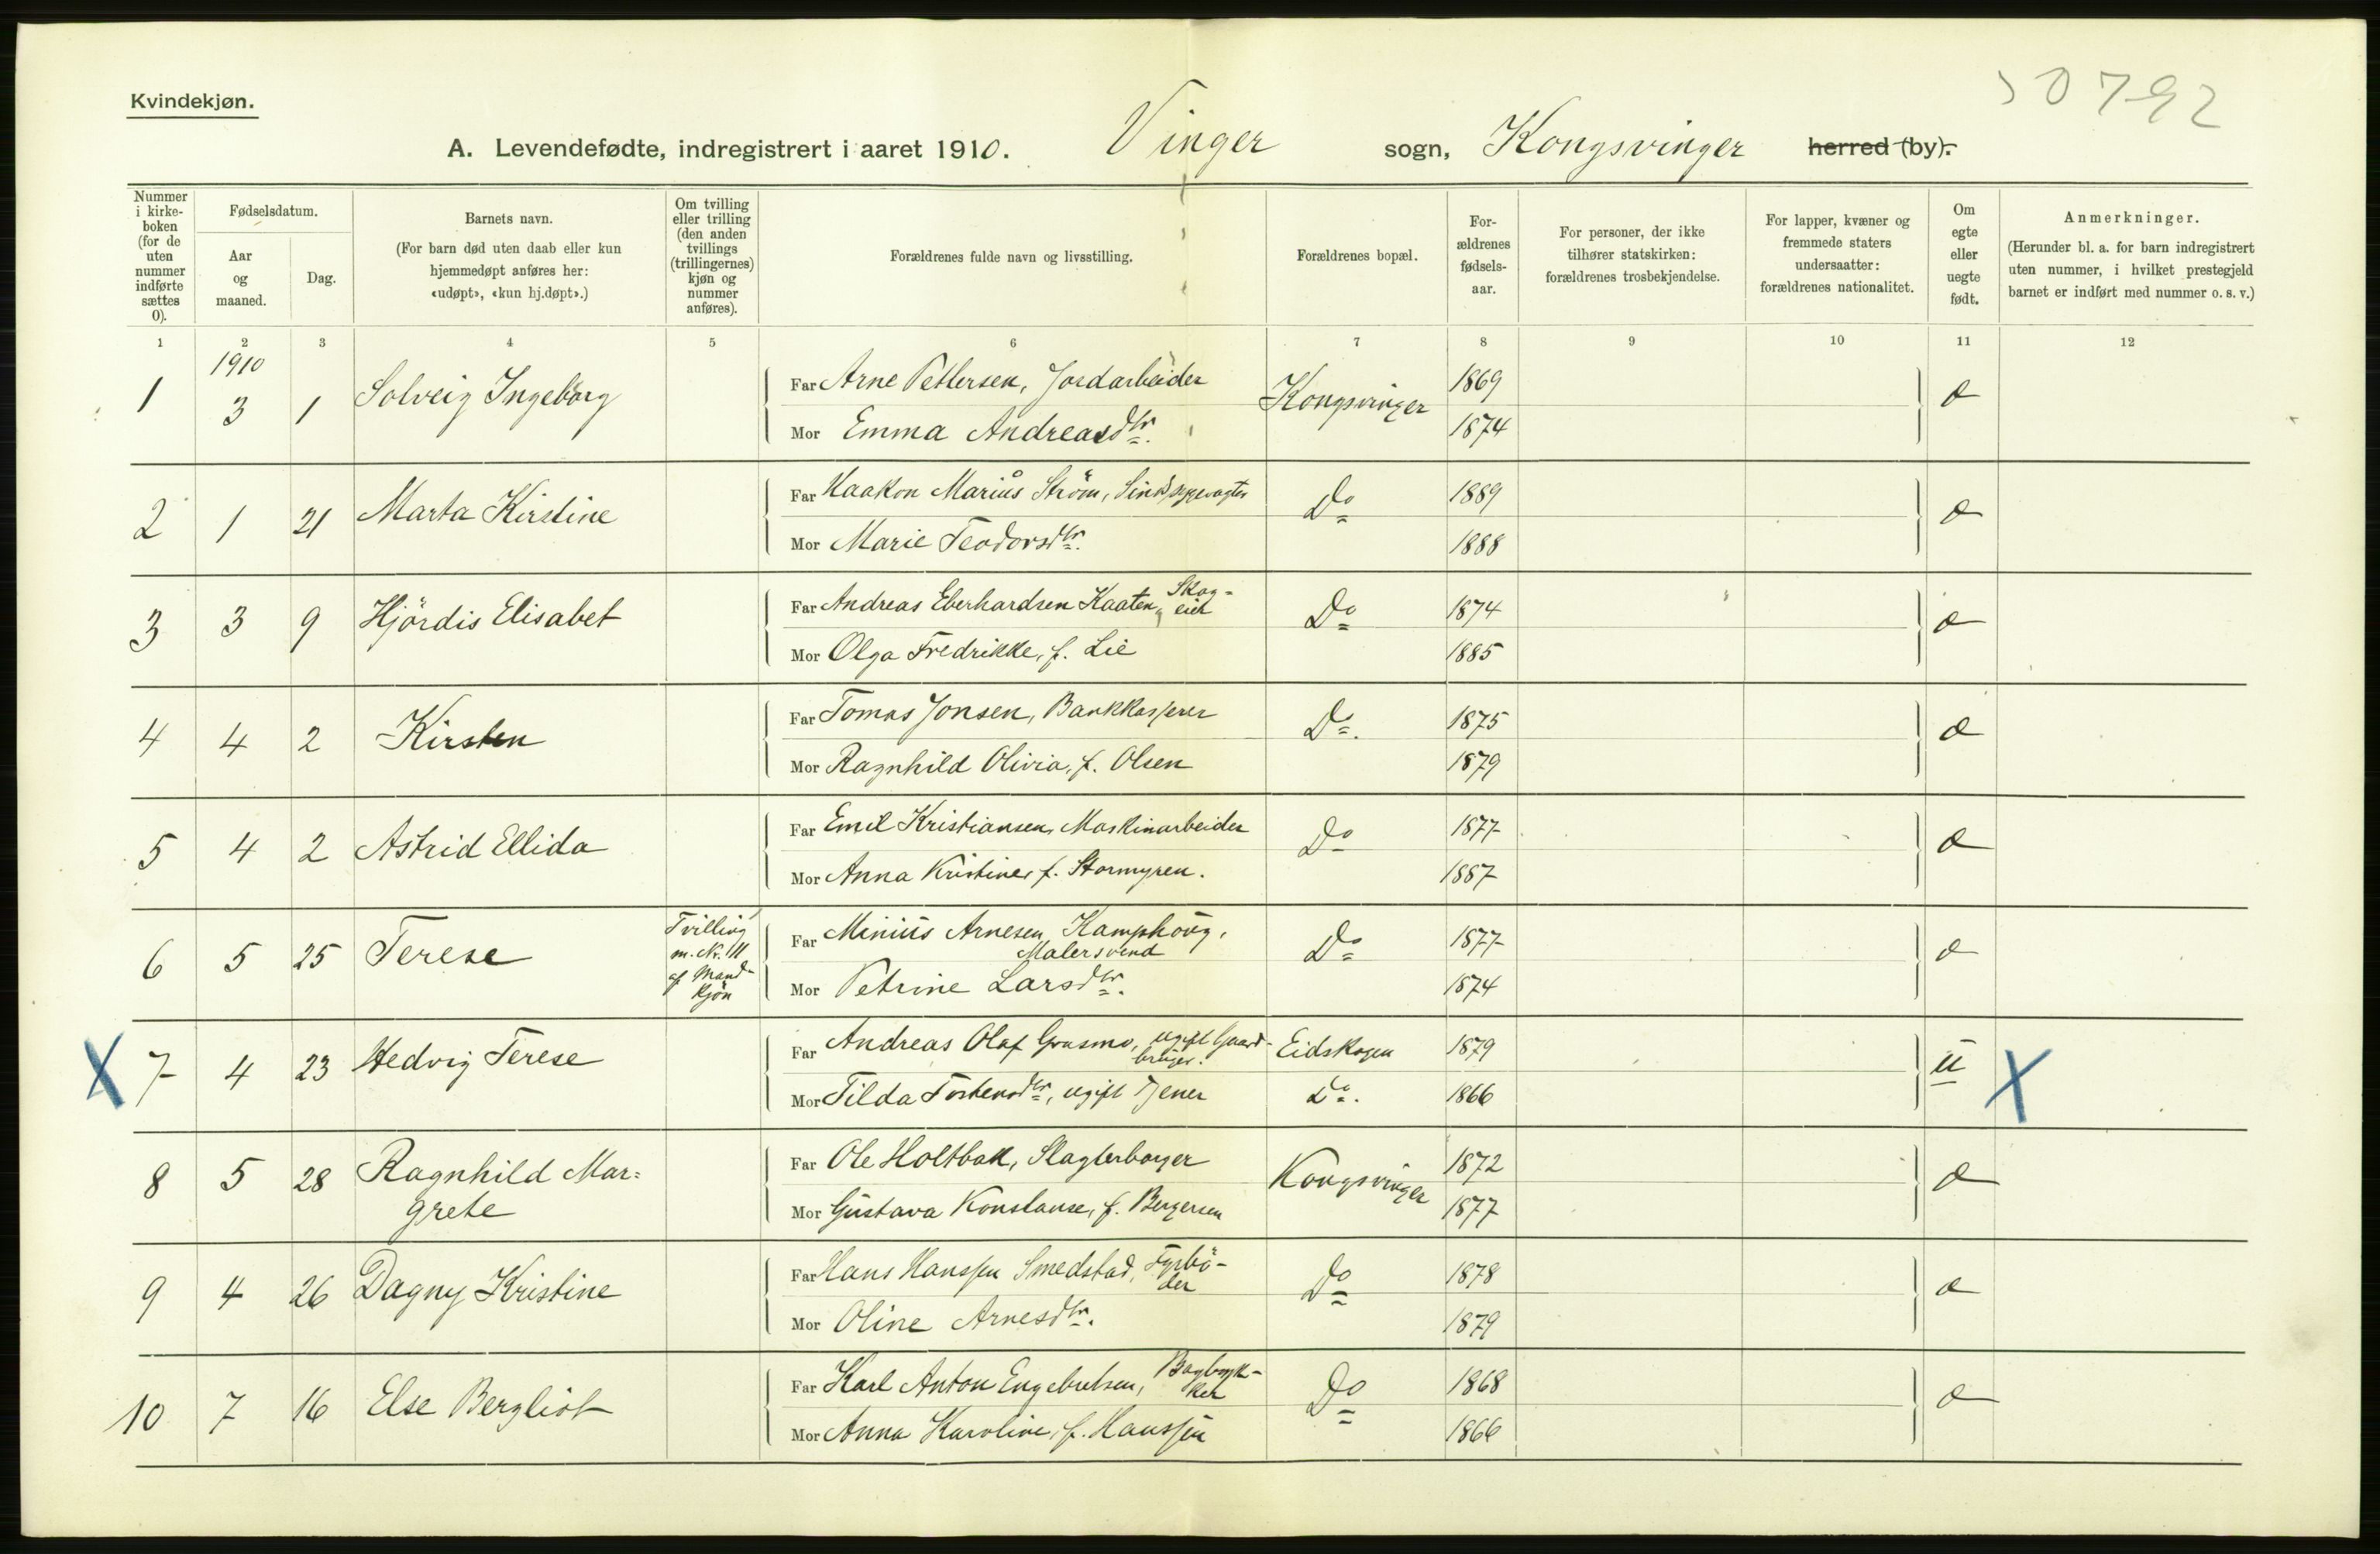 Kvindekjøn.
50792
A. Levendefødte, indregistrert i aaret 1910. Vinger sogn, Kongsvinger herred (by).
Nummer i kirke-boken (for de uten nummer indførte sættes 0).
Fødselsdatum.
Aar og maaned.
Dag.
Barnets navn.
(For barn død uten daab eller kun hjemmedøpt anføres her: «udøpt», «kun hj.døpt».)
Om tvilling eller trilling (den anden tvillings (trillingernes) kjøn og nummer anføres).
Forældrenes fulde navn og livsstilling.
Forældrenes bopæl.
For-ældrenes fødsels-aar.
For personer, der ikke tilhører statskirken: forældrenes trosbekjendelse.
For lapper, kvæner og fremmede staters undersaatter: forældrenes nationalitet.
Om egte eller uegte født.
Anmerkninger.
(Herunder bl. a. for barn indregistrert uten nummer, i hvilket prestegjeld barnet er indført med nummer o. s. v.)
1 2 3 4 5 6 7 8 9 10 11 12
1910
1 3 1 Solveig Ingeborg
Far Arne Pettersen, Jordarbeider Kongsvinger 1869
Mor Emma Andreasdtr. 1874
2 1 21 Marta Kirstine
Far Haakon Marius Ström, Sindssygevagter Do 1889
Mor Marie Teodorsdtr. 1888
3 3 9 Hjördis Elisabet
Far Andreas Eberhardsen Kaaten, Skog-eier Do 1874
Mor Olga Fredrikke, f. Lie 1885
4 4 2 Kirsten
Far Tomas Jonsen, Bankkasserer Do. 1875
Mor Ragnhild Olivia, f. Olsen 1879
5 4 2 Astrid Ellida
Far Emil Kristiansen, Maskinarbeider Do 1877
Mor Anna Kristine, f. Stormyren. 1887
6 5 25 Terese Tvilling m. Nr. 11 af Mand-kjön
Far Minius Arnesen Kamphoug, Malersvend Do 1877
Mor Petrine Larsdtr. 1874
X 7 4 23 Hedvig Terese
Far Andreas Olaf Grasmo, ugift Gaard-bruger. Eidskogen 1879 u X
Mor Tilda Torstensdtr, ugift Tjener Do. 1866
8 5 28 Ragnhild Mar=
grete
Far Ole Holtbak, Slagterborger Kongsvinger 1872
Mor Gustava Konstanse, f. Bergersen 1877
9 4 26 Dagny Kristine
Far Hans Hanssen Smedstad, Fyrbö-der Do 1878
Mor Oline Arnesdtr. 1879
10 7 16 Else Bergliot
Far Karl Anton Engebretsen, Bogtryk-ker Do 1868
Mor Anna Karoline, f. Hanssen 1866